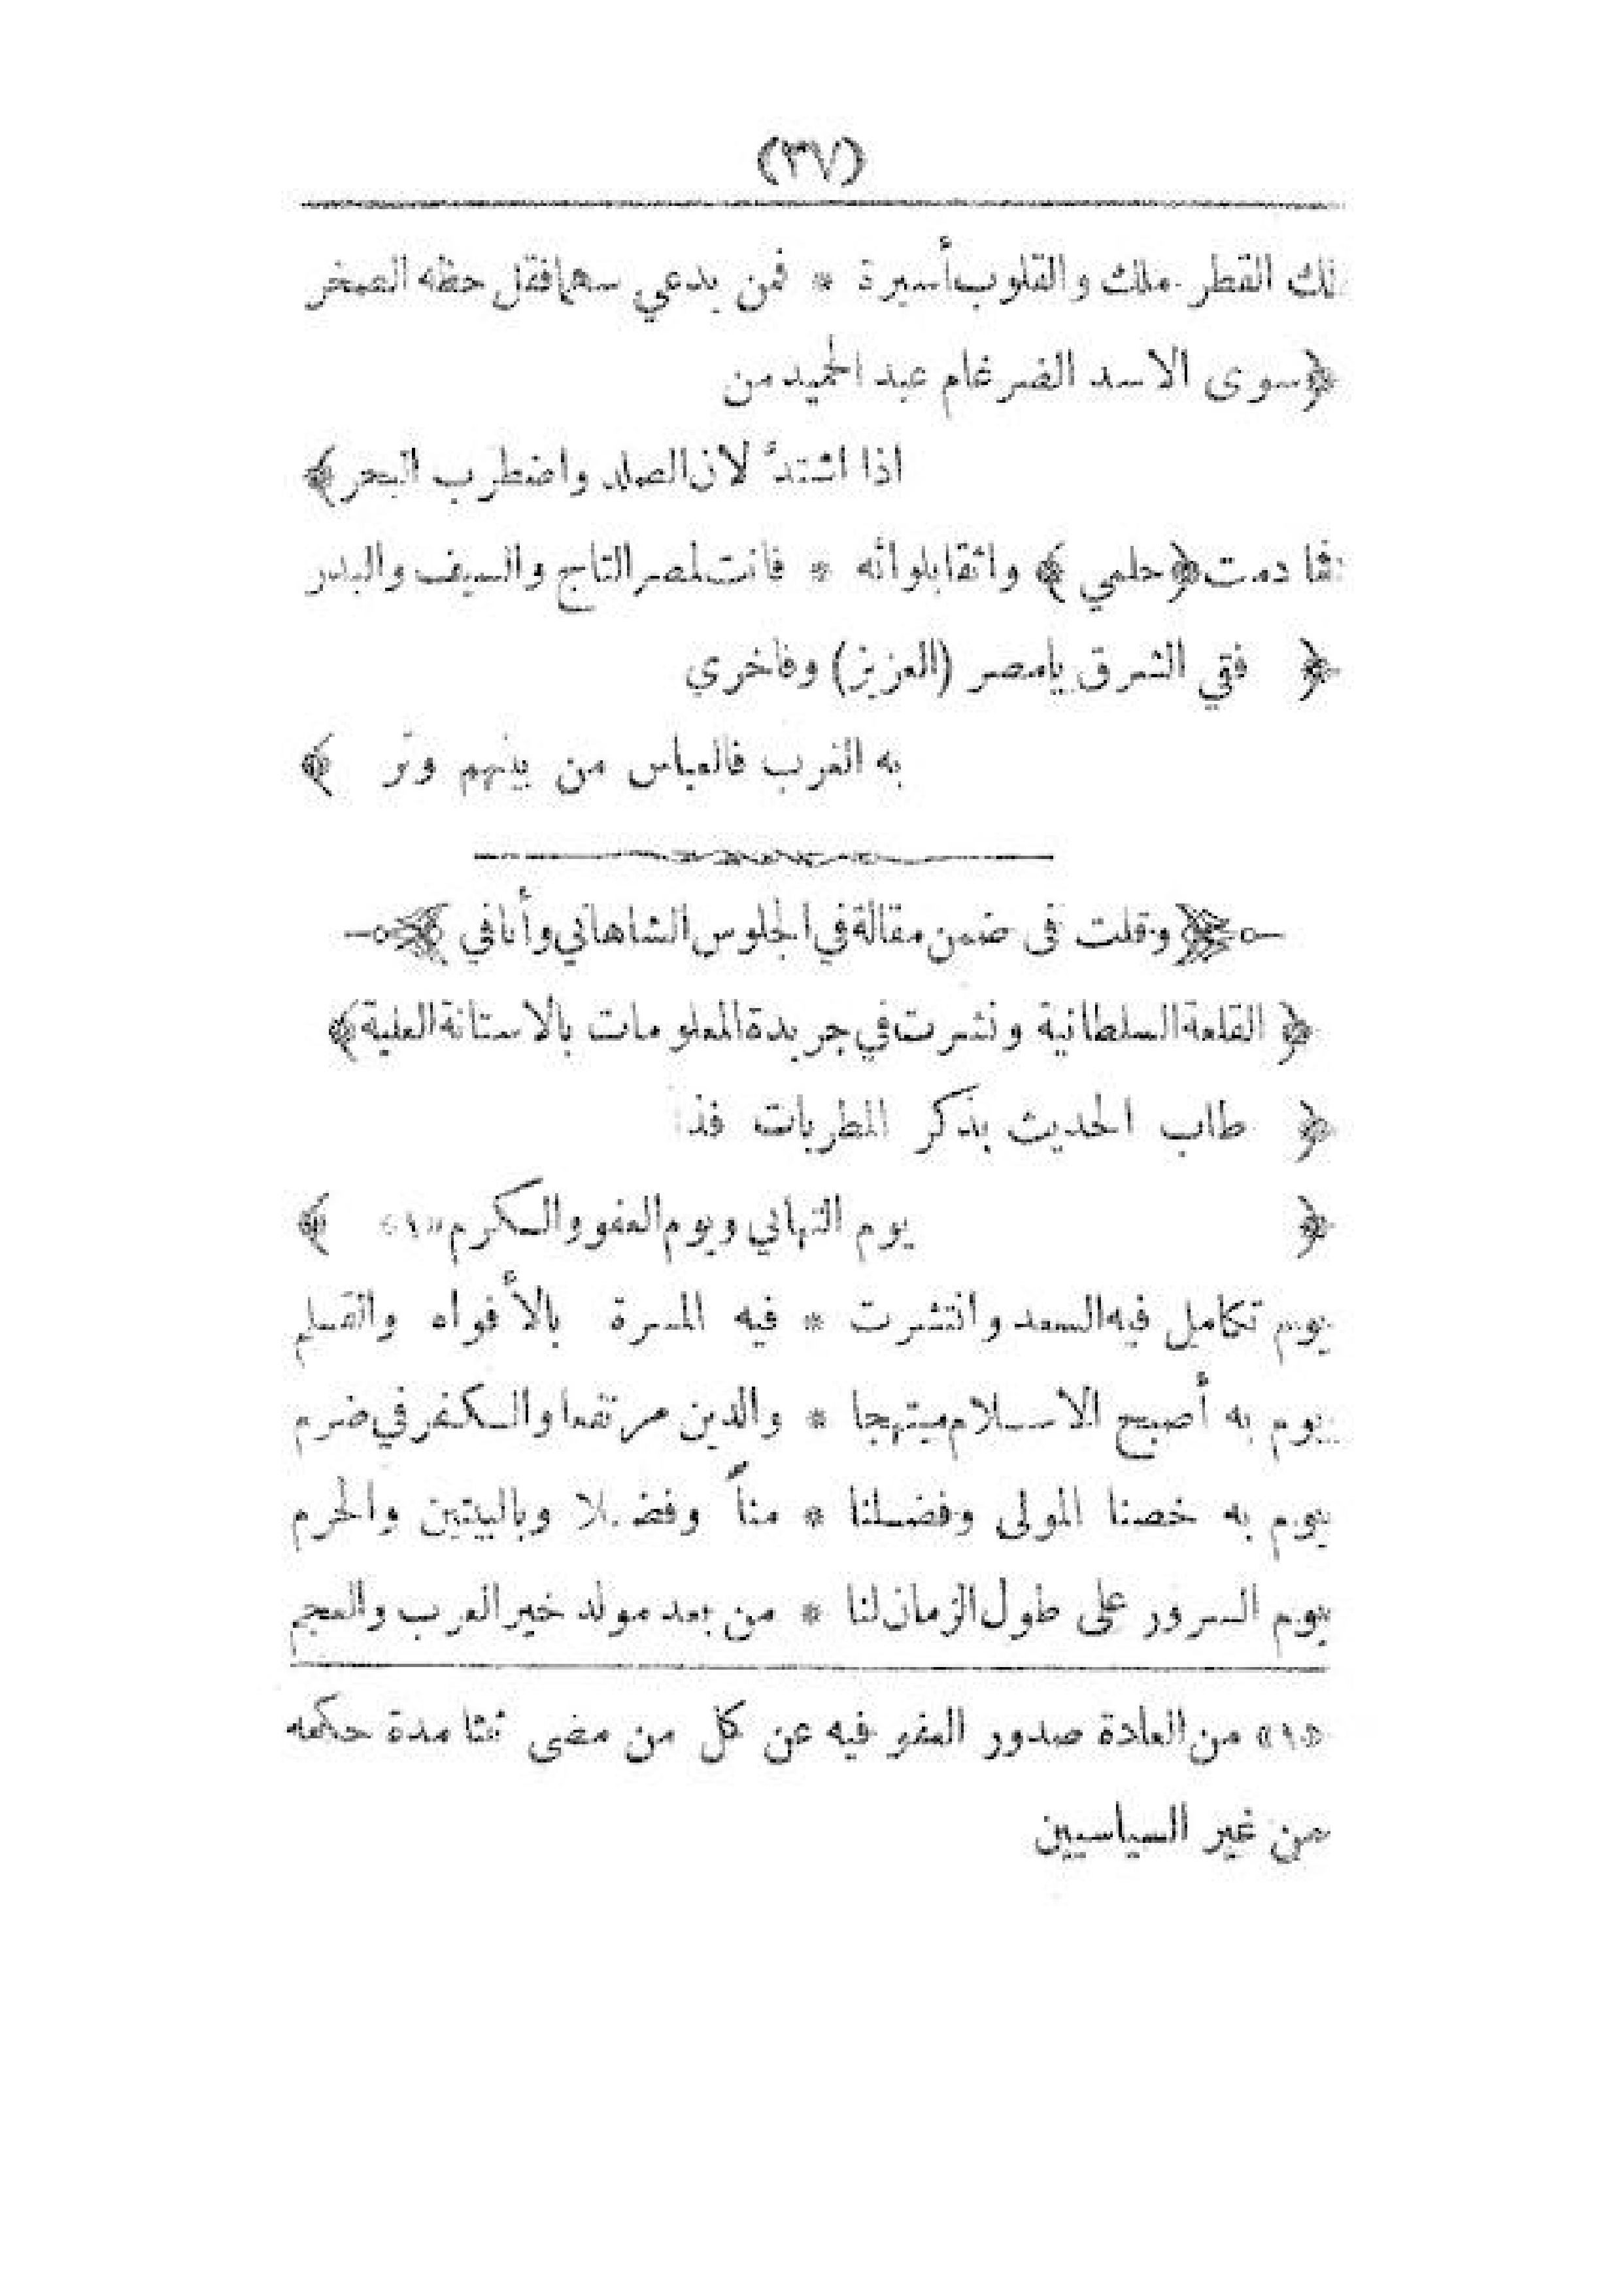 (٣٧)
لك القطر ملك والقلوب أسيرة * فمن يدعي سهما فقل حظه الصخر
﴿سوى الاسد الضرغام عبد الحميد من
اذا اشتدّ لان الصلد واضطرب البحر﴾
فما دمت ﴿حلمي﴾ واثقا بلوائه * فانت لمصر التاج والسيف والبدر
﴿ فتهي الشرق يا مصر (العزيز) وفاخري
به الغرب فالعباس من بينهم وتر ﴾
﴿وقلت فى ضمن مقالة في الجلوس الشاهاني وأنا في﴾
﴿القلعة السلطانية ونشرت في جريدة المعلومات بالاستانة العلية﴾
﴿ طاب الحديث بذكر المطربات فذا
﴿ يوم التهاني ويوم العفو والكرم «١» ﴾
يوم تكامل فيه السعد وانتشرت * فيه المسرة بالأفواه والقلم
يوم به أصبح الاسلام مبتهجا * والدين مرتفعا والكفر في ضرم
يوم به خصنا المولى وفضلنا * مناً وفضلا وبالبيتين والحرم
يوم السرور على طول الزمان لنا * من بعد مولد خير العرب والعجم
«١» من العادة صدور العفو فيه عن كل من مضى ثلثا مدة حكمه
من غير السياسيين